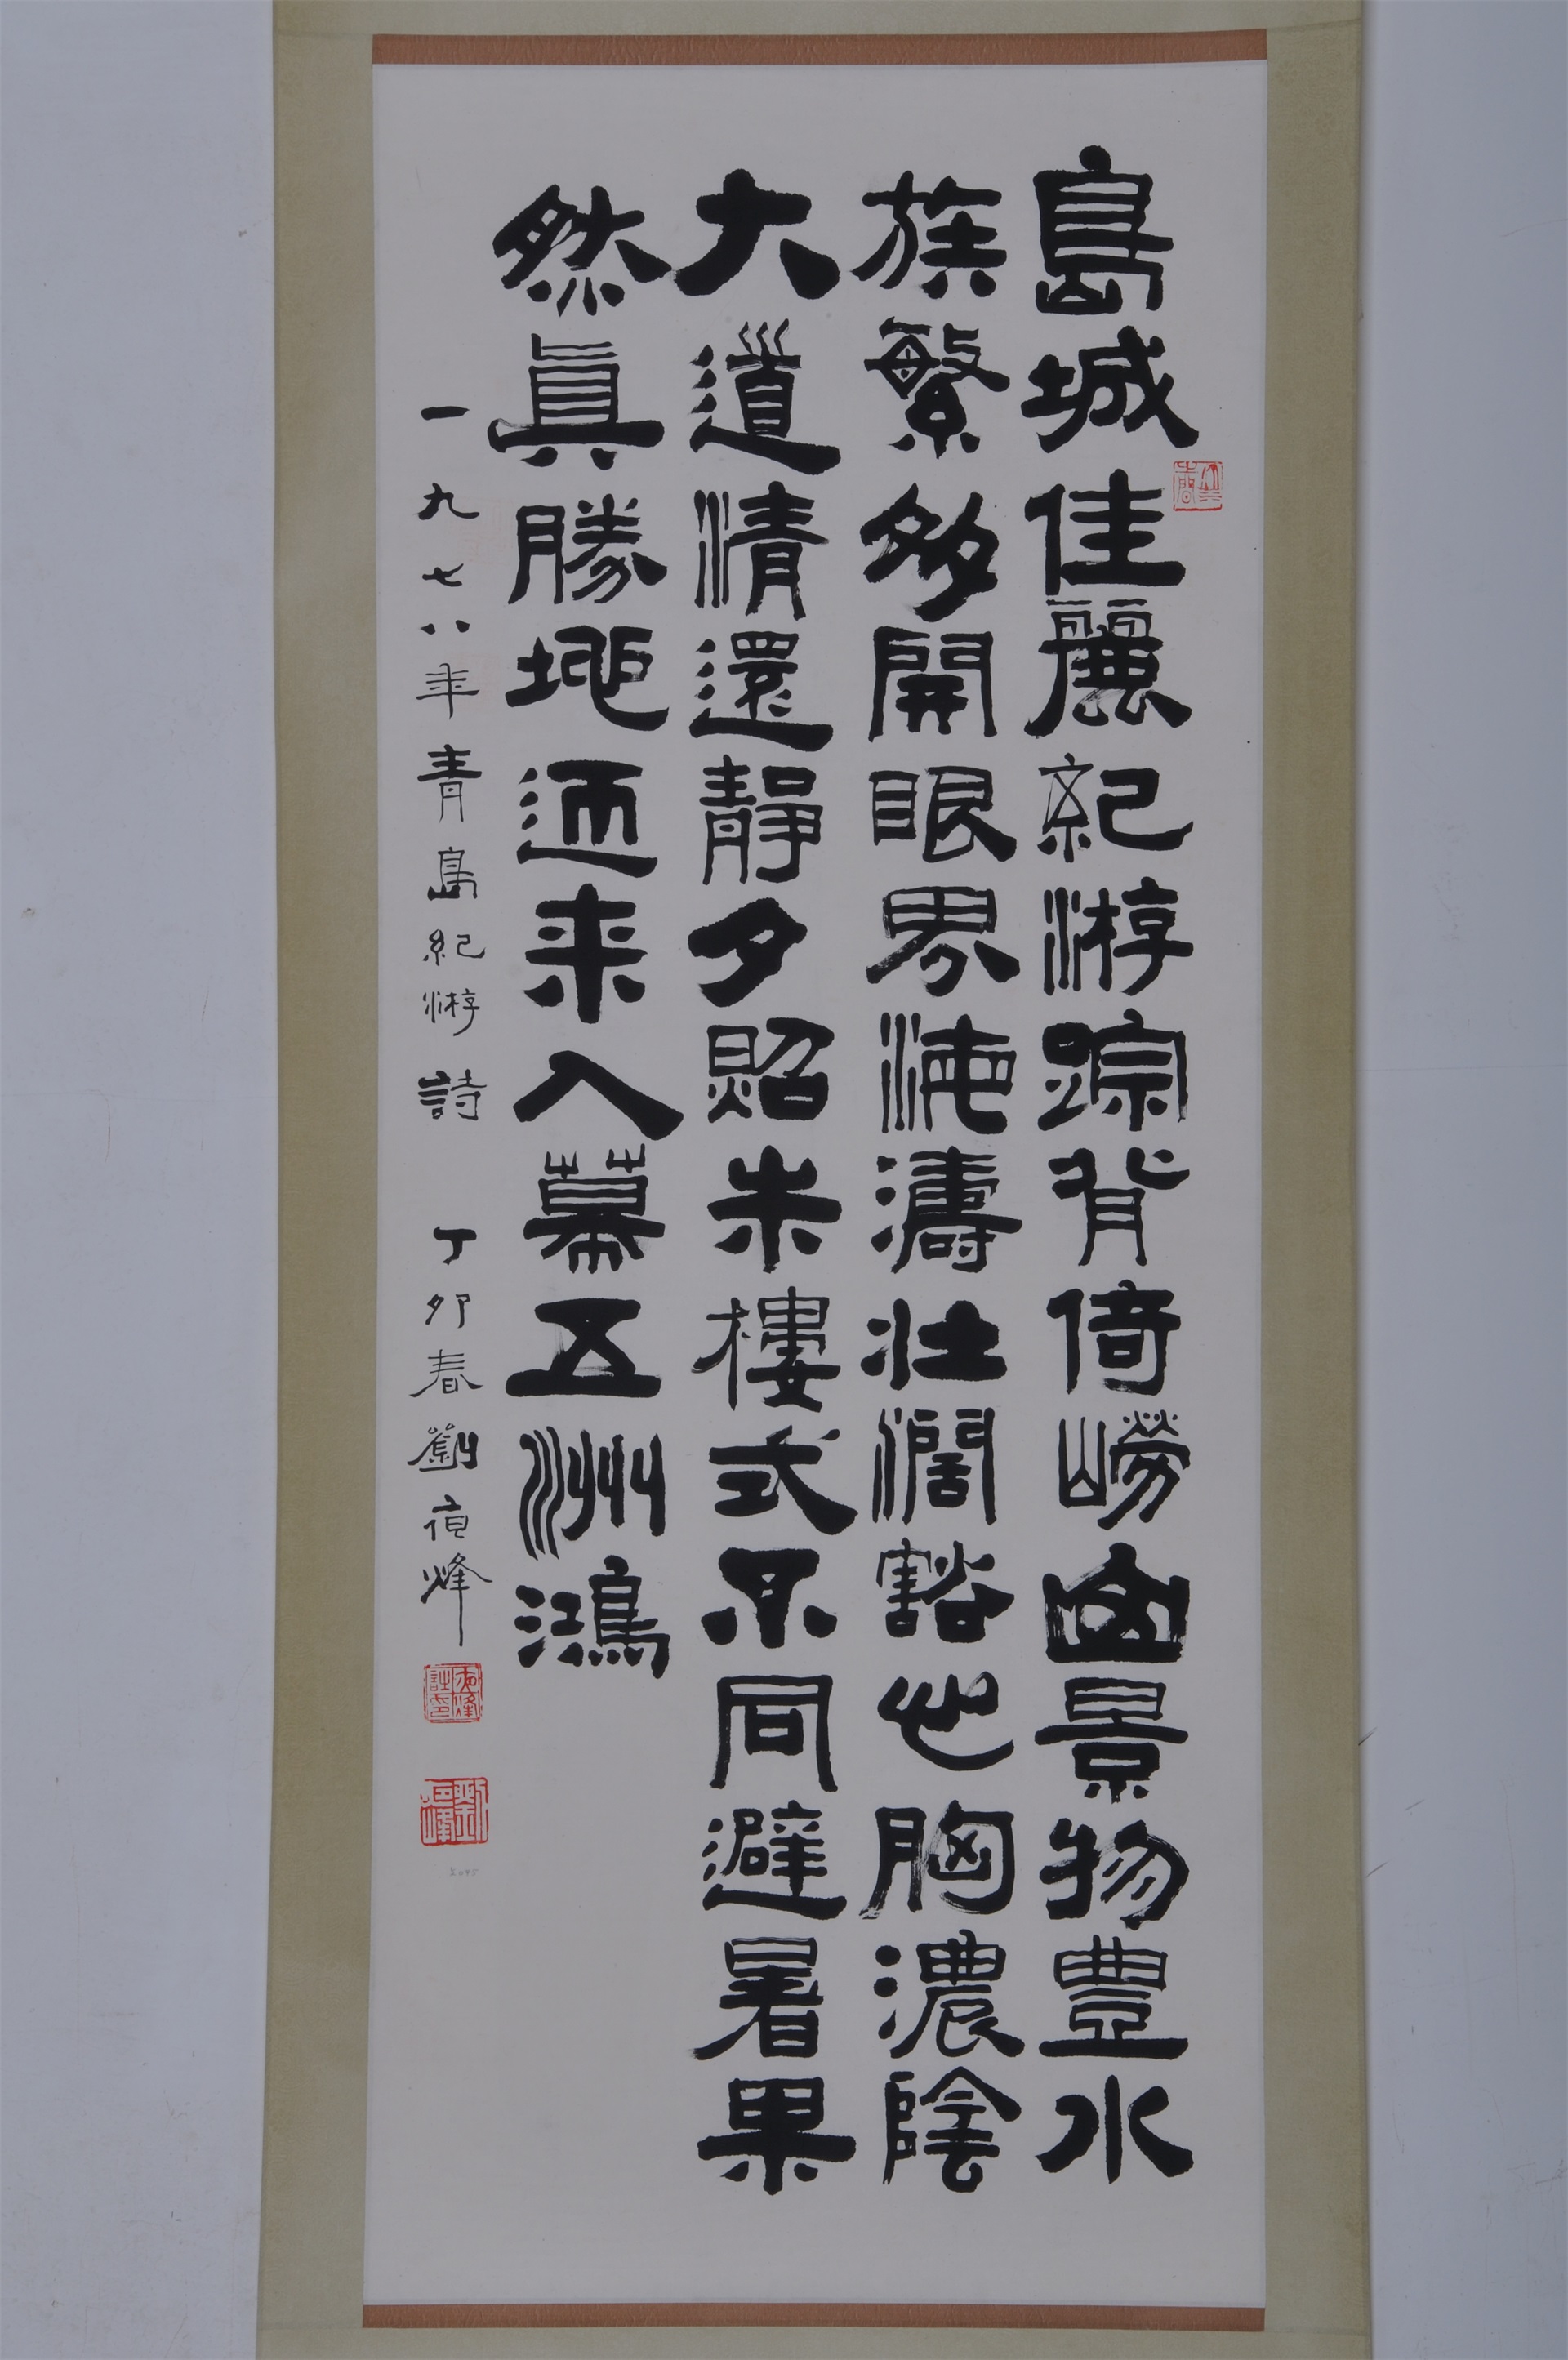 島城佳麗紀游踪背倚嶗山景物豐水
族繁多開眼界海濤壯濶豁心胸濃陰
大道清還靜夕照朱樓式不同避暑果
然眞勝地来入幕五洲鴻
一九七八年青島紀游詩 丁卯春劉烽